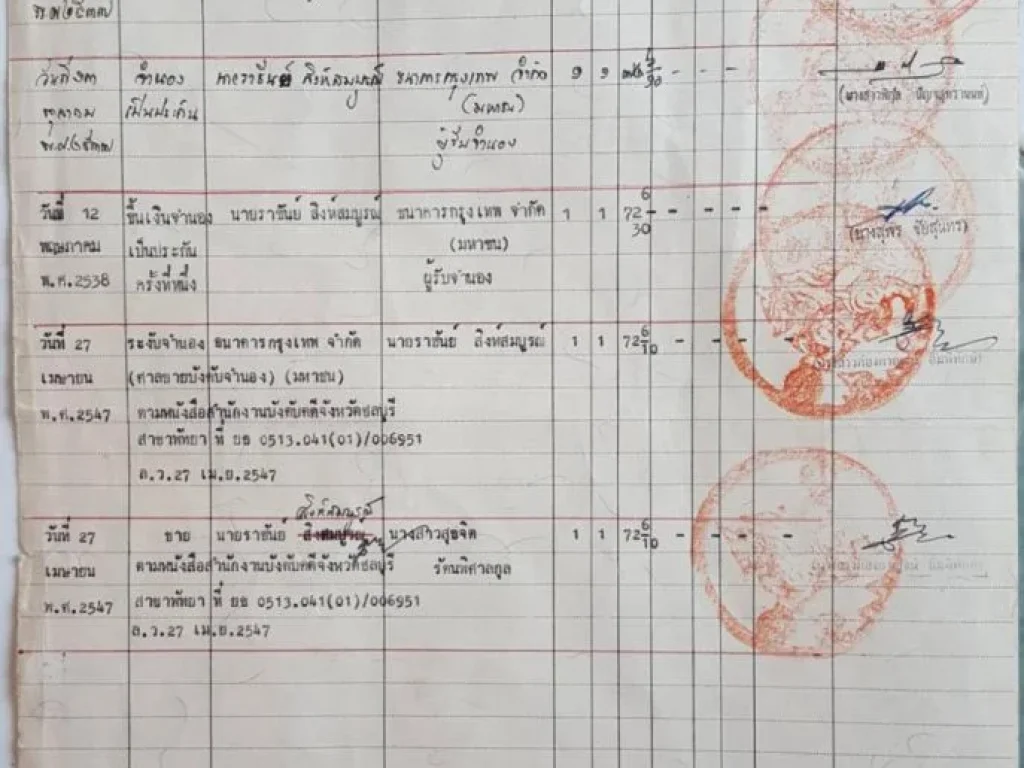 จำนอง สิงห์สมบูรณ์ ธนาคารกรุงเทพ จำกัด ๑ ๑ - - - -
ตุลาคม เป็นประกัน (มหาชน)
พ.ศ.๒๕๓๗ ผู้รับจำนอง
วันที่ 12 ขึ้นเงินจำนอง นายราชันย์ สิงห์สมบูรณ์ ธนาคารกรุงเทพ จำกัด 1 1 72 6/30 - - - -
พฤษภาคม เป็นประกัน (มหาชน) (นางสุพร ชัยสุนทร)
พ.ศ.2538 ครั้งที่หนึ่ง ผู้รับจำนอง
วันที่ 27 ระงับจำนอง ธนาคารกรุงเทพ จำกัด นายราชันย์ สิงห์สมบูรณ์ 1 1 72 6/10 - - - -
เมษายน (ศาลขายบังคับจำนอง) (มหาชน)
พ.ศ.2547 ตามหนังสือสำนักงานบังคับคดีจังหวัดชลบุรี
สาขาพัทยา ที่ ยธ 0513.041(01)/006951
ล.ว.27 เม.ย.2547
สิงห์สมบูรณ์
วันที่ 27 ขาย นายราชันย์ นางสาวสุขจิต 1 1 72 6/10 - - - -
เมษายน ตามหนังสือสำนักงานบังคับคดีจังหวัดชลบุรี รัตนพิศาลกูล
พ.ศ.2547 สาขาพัทยา ที่ ยธ 0513.041(01)/006951
ล.ว.27 เม.ย.2547